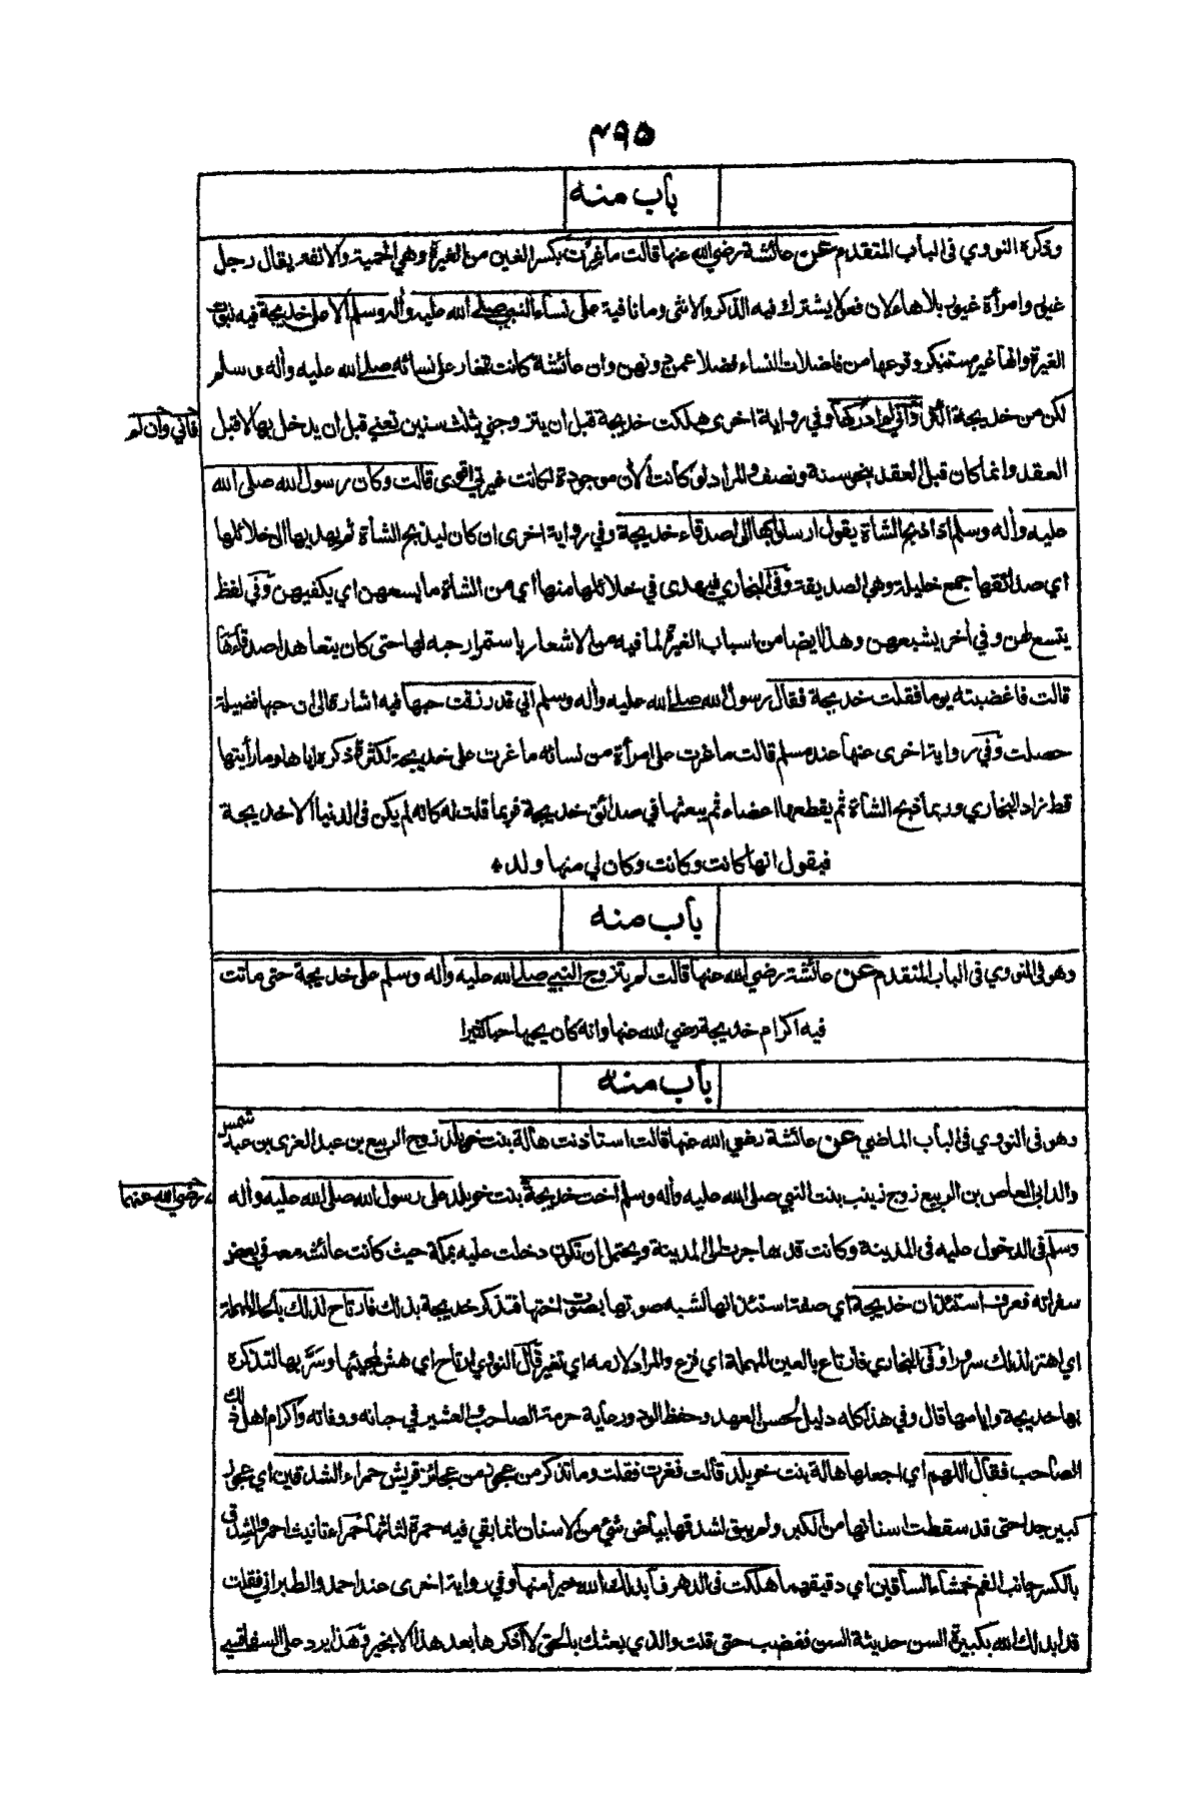 ٤٩٥
باب منه
وذكره النووي فى الباب المتقدم عن عائشة رضي الله عنها قالت ما غرت بكسر الغين من الغيرة وهي الحمية والانفه يقال رجل
غيور وامرأة غيور بلا هاء لان فعولا يشترك فيه الذكر والانثى وما نافية على نساء النبي صلى الله عليه وأله وسلم الا على خديجة فيه ثبوت
الغيرة وانها غير مستنكر وقوعها من فاضلات النساء فضلا عمن دونهن وان عائشة كانت تغار على نسائه صلى الله عليه وأله وسلم
لكن من خديجة اكثر واني لم ادركها وفي رواية اخرى هلكت خديجة قبل ان يتزوجني بثلث سنين تعني قبل ان يدخل بها لا قبل
قاني وان لم
العقد وانما كان قبل العقد بنحو سنة ونصف والمراد لو كانت الأن موجودة لكانت غيرتي اقوى قالت وكان رسول الله صلى الله
عليه وأله وسلم اذا ذبح الشاة يقول ارسلوا بها الى اصدقاء خديجة وفي رواية اخرى ان كان ليذبح الشاة ثم يهديها الى خلائلها
اي صدائقها جمع خليلة وهي الصديقة وفي البخاري فيهدى في خلائلها منها أي من الشاة ما يسعهن اي يكفيهن وفي لفظ
يتسع لهن وفي أخر يشبعهن وهذا ايضا من اسباب الغيرة لما فيه من الاشعار باستمرار حبه لها حتى كان يتعاهد اصدقاءها
قالت فاغضبته يوما فقلت خديجة فقال رسول الله صلى الله عليه وأله وسلم اني قد رزقت حبها فيه اشارة الى ان حبها فضيلة
حصلت وفي رواية اخرى عنها عند مسلم قالت ما غرت على امرأة من نسائه ما غرت على خديجة لكثرة ذكره اياها وما رأيتها
قط زاد البخاري وربما ذبح الشاة ثم يقطعها اعضاء ثم يبعثها في صدائق خديجة فربما قلت له كانه لم يكن فى الدنيا الا خديجة
فيقول انها كانت وكانت وكان لي منها ولد
باب منه
وهو فى النووي فى الباب المتقدم عن عائشة رضي الله عنها قالت لم يتزوج النبي صلى الله عليه وأله وسلم على خديجة حتى ماتت
فيه اكرام خديجة رضي الله عنها وانه كان يحبها حبا كثيرا
باب منه
وهو فى النووي فى الباب الماضي عن عائشة رضي الله عنها قالت استاذنت هالة بنت خويلد زوج الربيع بن عبد العزى بن عبد شمس
والد ابى العاص بن الربيع زوج زينب بنت النبي صلى الله عليه وأله وسلم اخت خديجة بنت خويلد على رسول الله صلى الله عليه وأله
رضي الله عنهما
وسلم فى الدخول عليه فى المدينة وكانت قد هاجرت الى المدينة ويحتمل ان تكون دخلت عليه بمكة حيث كانت عائشه معه في بعض
سفراته فعرف استئذان خديجة اي صفة استئذانها لشبه صوتها بصوت اختها فتذكر خديجة بذلك فارتاح لذلك بالحاء المهملة
اي اهتز لذلك سرورا وفى البخاري فارتاع بالعين المهملة اي فزع والمراد لازمه اي تغير قال النووي ارتاح اي هش لمجيئها وسر بها لتذكره
بها خديجة وايامها قال وفي هذا كله دليل لحسن العهد وحفظ الود ورعاية حرمة الصاحب والعشير في حياته ووفاته واكرام اهل ذلك
الصاحب فقال اللهم أي اجعلها هالة بنت خويلد قالت فغرت فقلت وما تذكر من عجوز من عجائز قريش حمراء الشدقين اي عجوز
كبير جدا حتى قد سقطت اسنانها من الكبر ولم يبق لشدقها بياض شئ من الاسنان انما بقي فيه حمرة لثاتها حمراء تانيث احمر والشدق
بالكسر جانب الفم خمشاء الساقين اي دقيقهما هلكت فى الدهر فابدلك الله خيرا منها وفي رواية اخرى عند احمد والطبراني فقلت
قد ابدلك الله بكبيرة السن حديثة السن فغضب حتى قلت والذي بعثك بالحق لا اذكرها بعد هذا الا بخير وهذا يرد على السفاقسي